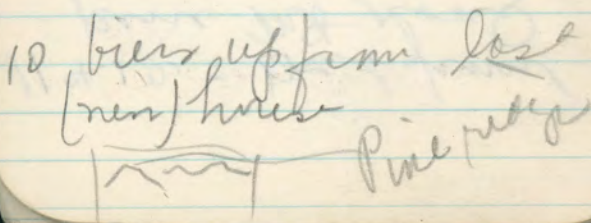 10 biers up from last
(new) house
Pine ridge